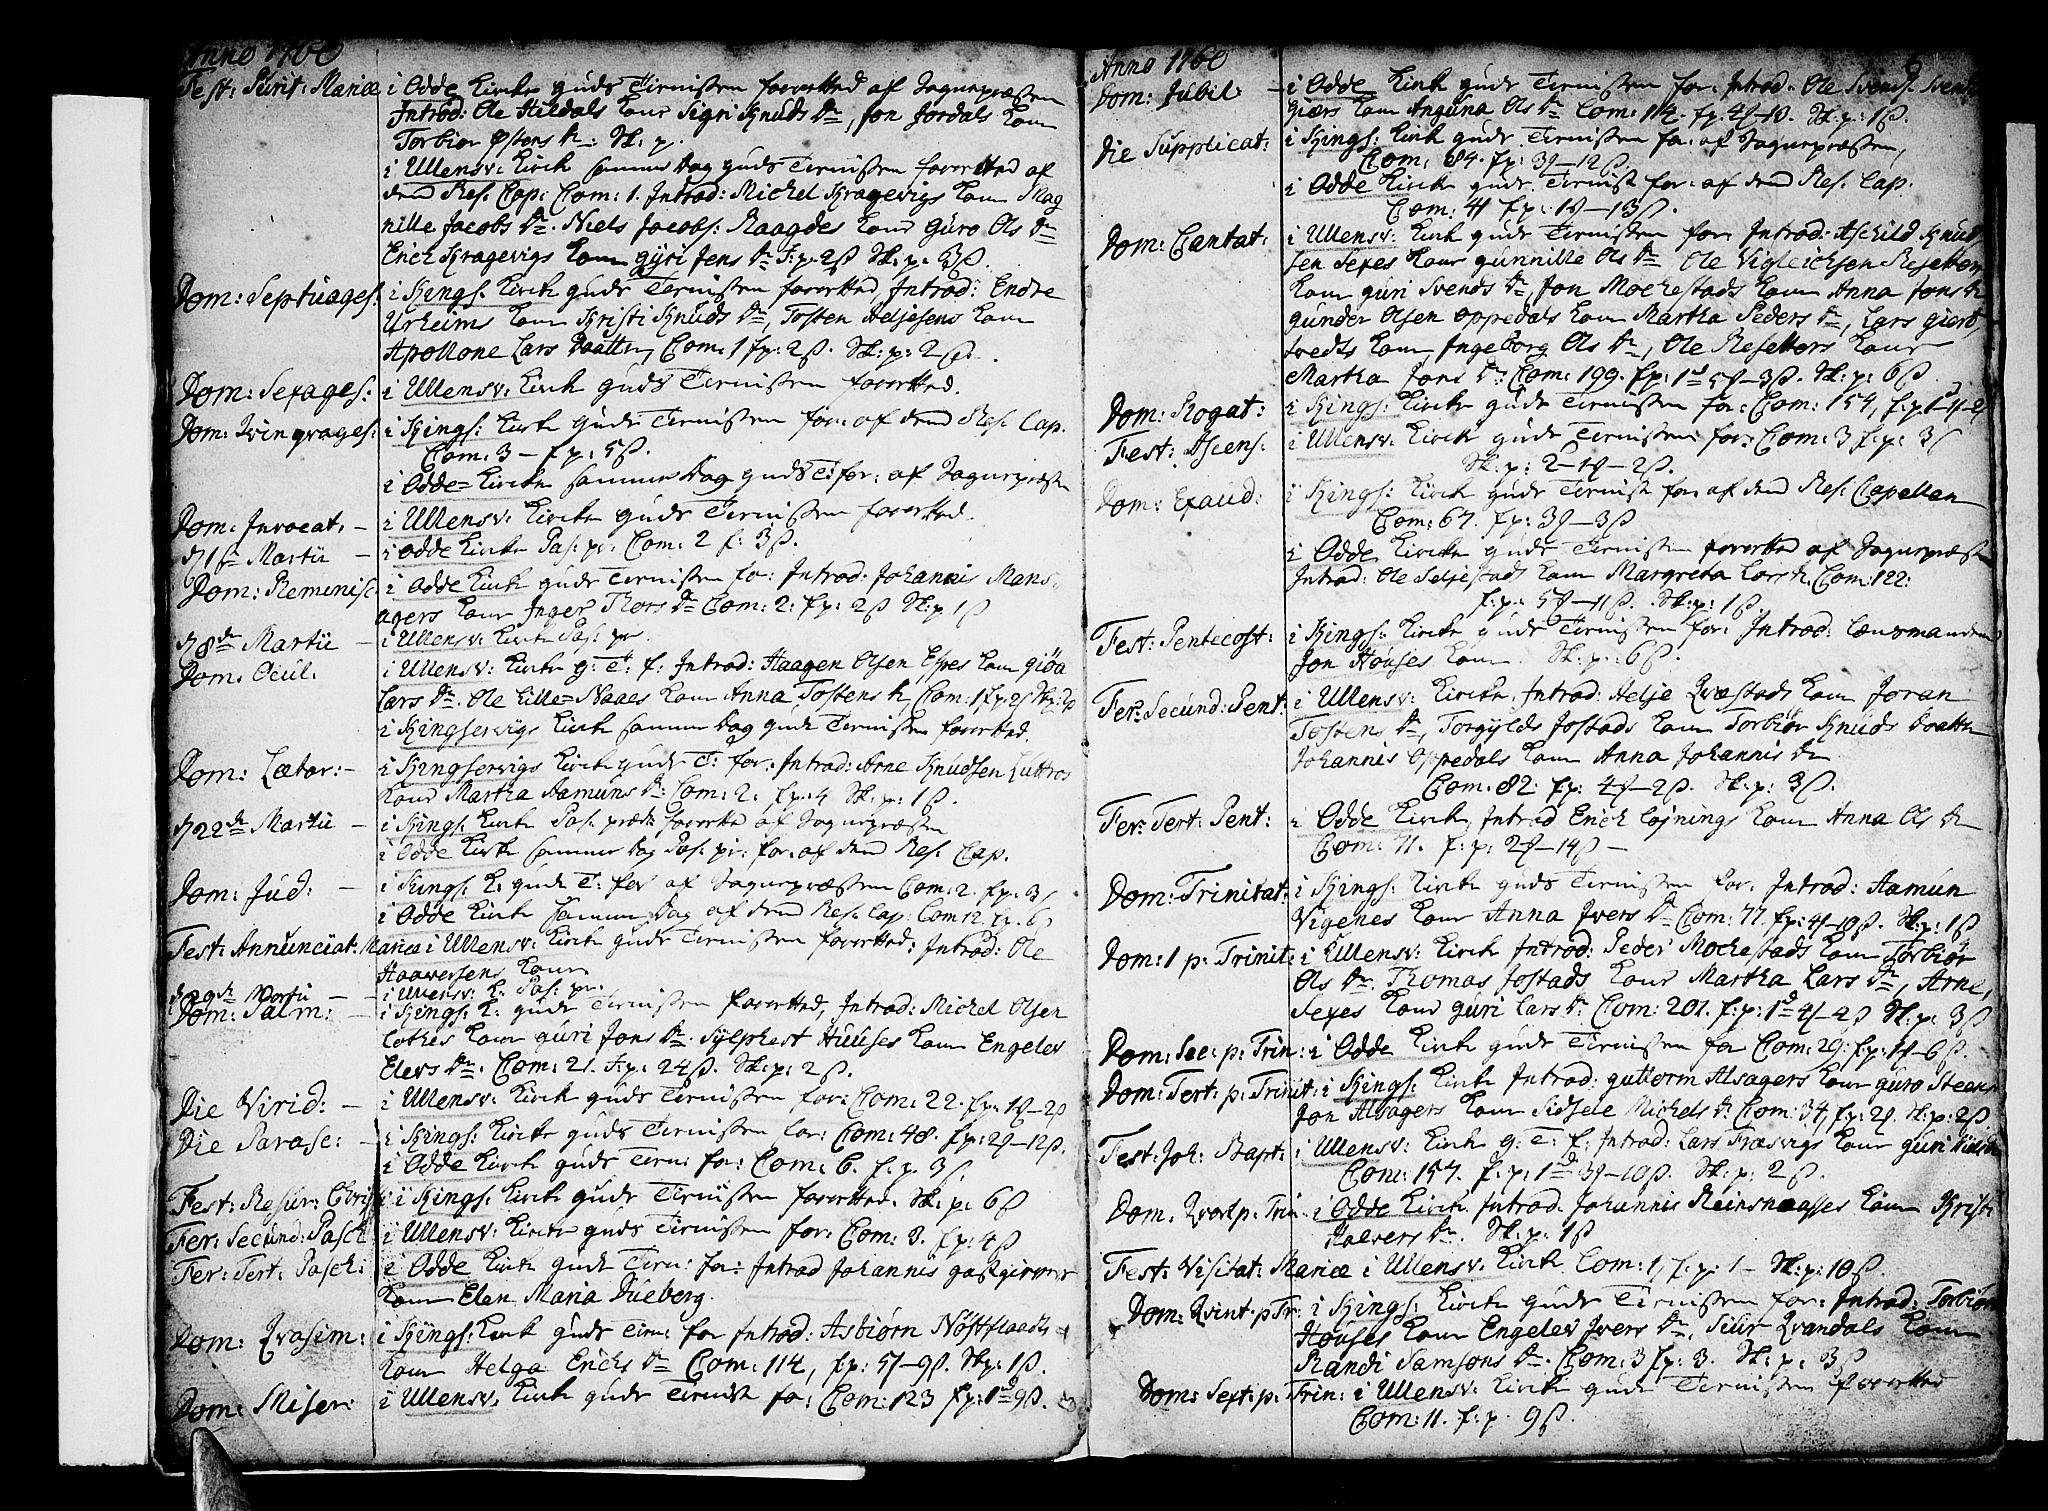 Anno 1760
Fest: Purit: Mariæ i Odde Kircke guds Tienisten forretted af Sognepræsten
Introd: Ole Hildals Kone Sigri Knuds Dr, Jon Jordals Kone
Torbiør Østens Dr: Sk: p.
i Ullensv: Kirck samme Dag guds Tienisten forretted af
dend Res. Cap: Com: 1. Introd: Michel Kragevigs Kone Mag
nille Jacobs Dr. Niels Jacobs: Raagdes Kone Guro Ols Dr
Erich Kragevigs Kone gyri Jens Dr F: p: 2ß Sk: p: 3ß.
Dom: Septuages: i Kings: Kirck guds Tienisten forretted Introd: Endre
Urheims Kone Kristi Knuds Dr, Tosten Heljesens Kone
Apollone Lars Daatter, Com: 1 fp: 2ß. Sk: p: 2ß.
Dom: Sexages: i Ullensv: Kirck guds Tienisten forretted.
Dom: Qvinqvages: i Kings: Kirck guds Tienisten for: af dend Res: Cap.
Com: 3 – f: p: 5ß.
i Odde Kircke samme Dag guds T: for: af Sognepræsten
Dom: Invocat: – i Ullensv: Kircke guds Tienisten forretted.
d 1ste Martii – i Odde Kircke Pas: pr: Com: 2 f: 3ß.
Dom: Reminisc: i Odde Kirck guds Tienisten fo: Introd: Johannis Mans-
agers Kone Inger Thors Dr Com: 2: fp: 2ß Sk: p 1ß
d 8de Martii – i Ullensv: Kircke Pas: pr.
Dom: Ocul. i Ullensv: Kircke g: T: f: Introd: Haagen Olsen Espes Kone giøa
Lars Dr. Ole Lille-Naaes Kone Anna Tostens Dr, Com: 1, fp: 2ß
i Kingservigs Kirck samme Dag guds Tienisten forretted.
Dom: Lætar: – i Kingservigs Kirck guds T: for: Introd: Arne Knudsen Luttros
Kone Martha Aamuns Dr: Com: 2: f: p: 4 Sk: p: 1ß.
d 22de Martii – i Kings: Kirck Pas: præd: forretted af Sognepræsten
i Odde Kircke samme Dag Pas: pr: for: af dend Res: Cap.
Dom: Jud: – i Kings: K: guds T: for af Sognepræsten Com: 2. fp: 3ß
i Odde Kirck samme Dag af dend Res: Cap: Com 12. fp. 6ß
Fest: Annunciat: Mariæ i Ullensv: Kirck guds Tienisten forretted: Introd: Ole
Haaversens Kone
d 29de Martii – i Ullensv: K: Pas: pr.
Dom: Palm: – i Kings: K: guds Tienisten forretted, Introd: Michel Olsen
Lothes Kone guri Jons Dr. Sylphest Huuses Kone Engelev
Elevs Dr. Com: 2. F: p: 24ß. Sk: p: 2ß.
Die Virid: – i Ullensv: Kirck guds Tienisten for: Com: 22. fp: 1β–2ß
Die Parasc: – i Kings: Kircke guds Tienisten for: Com: 48. fp: 2β–12ß.
i Odde Kirck guds Tien: for: Com: 6. f. p. 3ß.
Fest: Resur: Christi i Kings: Kirck guds Tienisten forretted. Sk: p: 6ß
Fer: Secund: Pasch: i Ullensv: Kircke guds Tienisten for: Com: 3. fp: 4ß
Fer: Tert: Pasch: i Odde Kirck guds Tien: fo: Introd Johannis gastgivers
Kone Elen Maria Dueberg.
Dom: Qvasim: i Kings: Kirck guds Tien: for Introd: Asbiørn Nøstflaedts
Kone Helga Erichs Dr Com: 114, fp: 5β–9ß. Sk p: 1ß.
Dom: Miser: i Ullensv: Kirck guds Tienist for: Com: 123 fp: 1d 9ß.
Anno 1760
6
Dom: Jubil: – i Odde Kirck guds Tienisten for: Introd. Ole Svends. Svends
giærs Kone Anguna Ols Dr Com: 114. fp: 4β–10. Sk: p: 1ß.
Die Supplicat: i Kings: Kirck guds Tienisten for: af Sognepræsten,
Com: 84. fp: 3β–12ß.
i Odde Kirck guds Tienist for: af dend Res. Cap.
Com: 41 fp: 1β–13ß.
Dom: Cantat: i Ullensv: Kirck guds Tienisten for: Introd: Aschild Knud-
sen Sexes Kone gunnille Ols Dr Ole Vigleichsen
Kone guri Svends Dr, Jon Mochestads Kone Anna Jons Dr
gunder Olsen Oppedals Kone Martha Peders Dr, Lars giert-
vedts Kone Ingeborg Ols Dr, Ole Resetters Kone
Martha Jons Dr Com: 199. fp: 1d 5β–3ß. Sk: p: 6ß.
Dom: Rogat: i Kings: Kircke guds Tienisten for: Com: 154, f: p 1d 4–2ß
Fest: Ascens: i Ullensv: Kirck guds Tienisten for: Com: 3 f: p: 3ß
Sk: p: 2–1β–2ß.
Dom: Exaud: i Kings: Kirck guds Tienist for: af dend Res: Capellan
Com: 67. fp: 3β–3ß
i Odde Kircke guds Tienisten forretted af Sognepræsten
Introd: Ole Seljestads Kone Margreta Lars Dr. Com: 122:
f: p: 5β–11ß. Sk: p: 1ß.
Fest: Pentecost: i Kings: Kircke guds Tienisten for: Introd: Lænsmanden
Jon Houses Kone Sk: p: 6ß.
Fer: Secund: Pent: i Ullensv: Kircke. Introd: Helje Qvæstads Kone Joran
Tostens Dr, Torgylds Jostads Kone Torbiør Knuds Daatter
Johannis Oppedals Kone Anna Johannis Dr
Com: 82: fp: 4β–2ß. Sk: p: 3ß.
Fer: Tert: Pent: i Odde Kirck, Introd Erich Løjnings Kone Anna Ols Dr
Com: 71. f: p: 2β–14ß –
Dom: Trinitat: i Kings: Kirck guds Tienisten for: Introd: Aamun
Vigenes Kone Anna Ivers Dr Com: 77. fp: 4β–10ß. Sk: p: 1ß
Dom: 1 p: Trinit: i Ullensv: Kirck Introd: Peder Mochestads Kone Torbiør
Ols Dr. Thomas Jostads Kone Martha Lars Dr, Arne
Sexes Kone guri Lars Dr Com: 201. f: p: 1d 4β–2ß Sk: p: 3ß
Dom: Sec: p: Trin: i Odde Kirck guds Tienisten for Com: 29: f: p: 1β–6ß.
Dom: Tert: p: Trinit: i Kings: Kircke Introd: guttorm Alsagers Kone guro Steens
Jon Alsagers Kone Sidsele Michels Dr Com: 34, f: p: 2β. Sk: p: 2ß
Fest: Joh: Bapt: i Ullensv: Kirck g: T: f: Introd: Lars Fræsvigs Kone guri
Com: 157. f: p: 1d 3β–10ß. Sk: p: 2ß.
Dom: Qvart p: Trin: i Odde Kirck Introd. Johannis Reinsnaasses Kone Kristi
Halvers Dr. Sk: p: 1ß
Fest: Visitat: Mariæ i Ullensv: Kirck Com: 1, f: p: 1 – Sk: p: 10ß.
Dom: Qvint: p Tr: i Kings: Kircke guds Tienisten for: Introd: Torbiørn
Houses Kone Engelev Ivers Dr, Siur Qvandals Kone
Randi Samsons Dr. Com: 3 fp: 3. Sk: p: 3ß
Dom: Sext: p: Trin: i Ullensv: Kirck guds Tienisten forretted
Com: 11. f: p. 9ß.